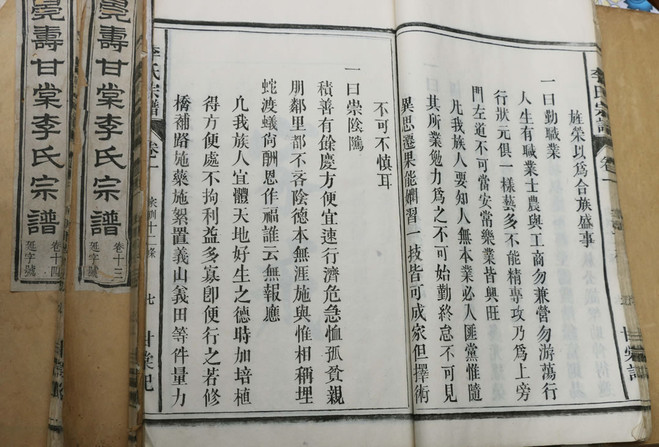 李氏宗譜 卷一
旌榮以爲合族盛事
一曰勤職業
人生有職業士農與工商勿兼營勿游蕩行
行狀元俱一樣藝多不能精專攻乃爲上旁
門左道不可當安常樂業皆興旺
凡我族人要知人無本業必入匪黨惟隨
其所業勉力爲之不可始勤終怠不可見
異思遷果能嫻習一技皆可成家但擇術
不可不慎耳
一曰崇陰騭
積善有餘慶方便宜速行濟危急恤孤貧親
朋鄰里都不吝陰德本無涯施與惟相稱埋
蛇渡蟻何酬恩作福誰云無報應
凡我族人宜體天地好生之德時加培植
得方便處不拘利益多寡卽便行之若修
橋補路施藥施絮置義山義田等件量力
李氏宗譜 卷一 家訓十二條 七 甘棠記
壽甘棠李氏宗譜 卷十三 延字號
壽甘棠李氏宗譜 卷十四 延字號